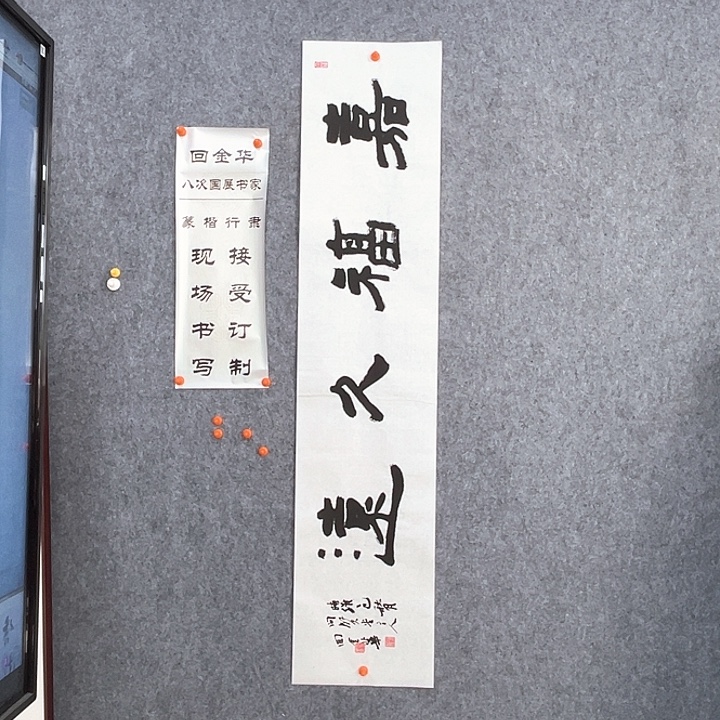 回金华
八次国展书家
篆楷行隶
现场书写
接受订制
嘉福久遠
回金華